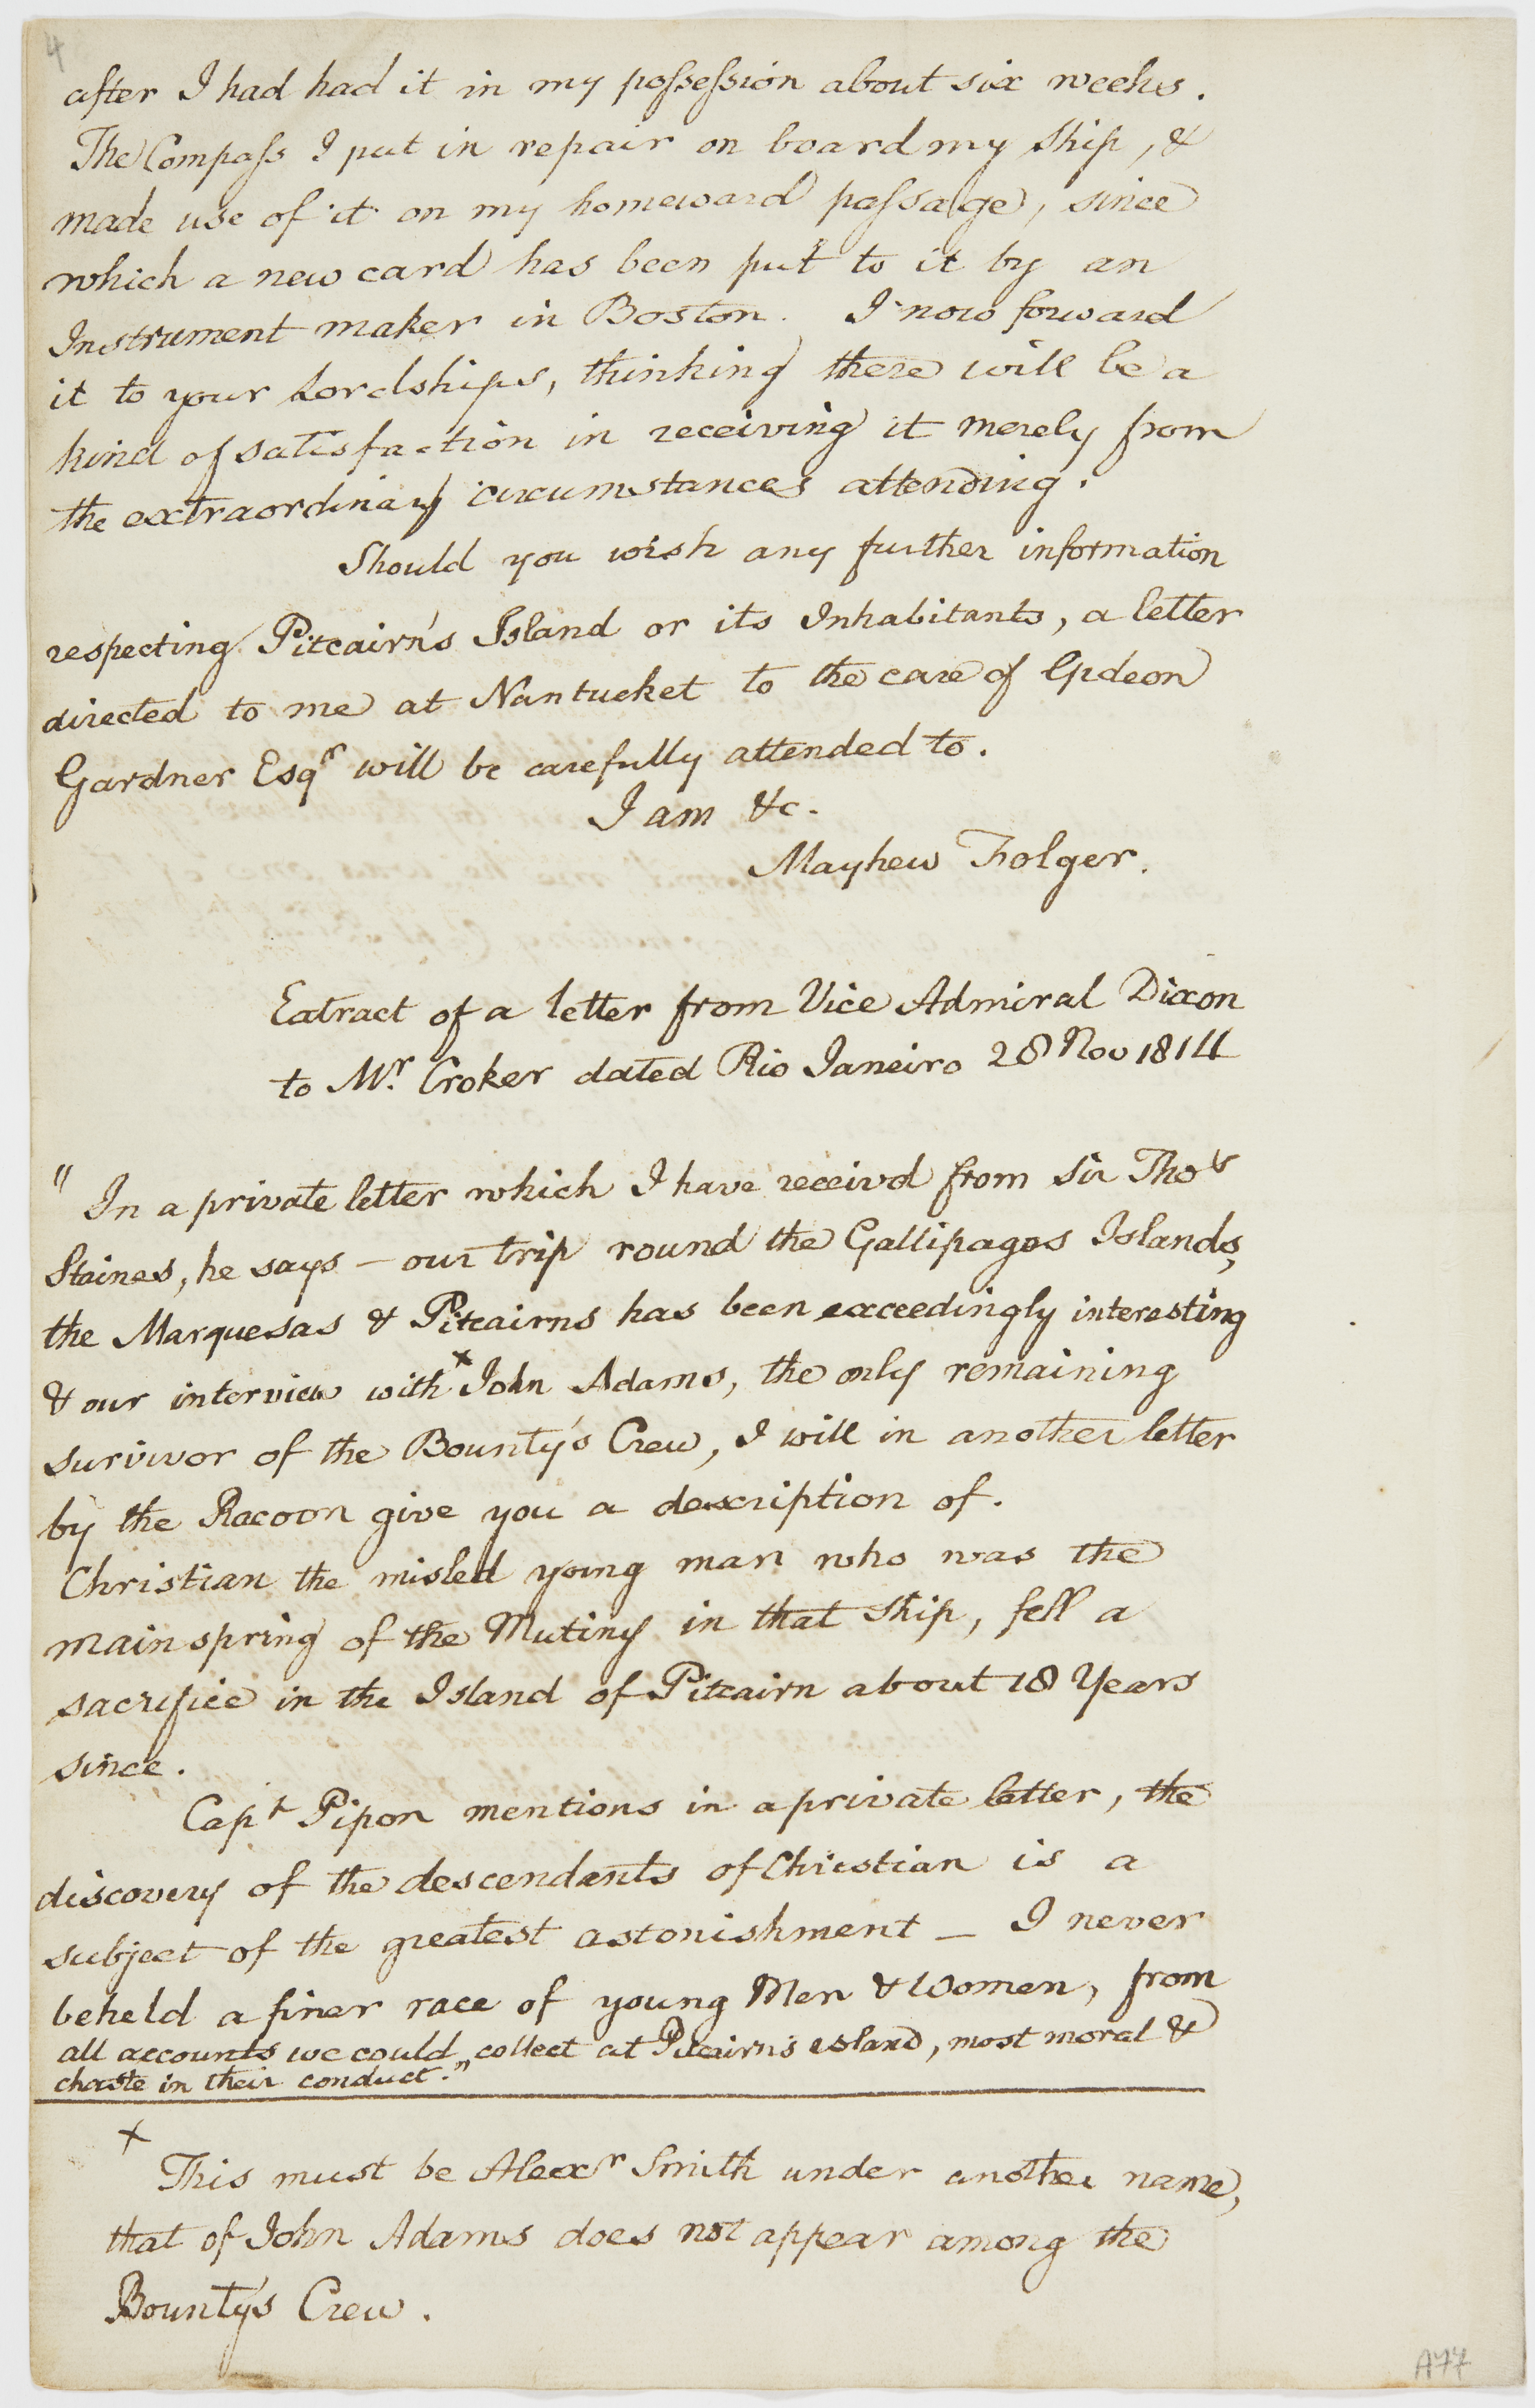 4
after I had had it in my possession about six weeks.
The Compass I put in repair on board my ship, &
made use of it on my homeward passage, since
which a new card has been put to it by an
Instrument maker in Boston. I now forward
it to your Lordships, thinking there will be a
kind of satisfaction in receiving it merely from
the extraordinary circumstances attending.
Should you wish any further information
respecting Pitcairn's Island or its Inhabitants, a letter
directed to me at Nantucket to the care of Gideon
Gardner Esqr will be carefully attended to.
I am &c.
Mayhew Folger.
Extract of a letter from Vice Admiral Dixon
to Mr. Croker dated Rio Janeiro 28 Nov 1814
" In a private letter which I have receivd from Sir Thos
Staines, he says – our trip round the Gallipagos Islands,
the Marquesas & Pitcairns has been exceedingly interesting
& our interview with x John Adams, the only remaining
survivor of the Bounty's Crew, I will in another letter
by the Racoon give you a description of.
Christian the misled young man who was the
main spring of the Mutiny in that ship, fell a
sacrifice in the Island of Pitcairn about 18 Years
since.
Capt Pipon mentions in a private letter, the
discovery of the descendents of Christian is a
subject of the greatest astonishment – I never
beheld a finer race of young Men & Women, from
all accounts we could collect at Pitcairn's island, most moral &
chaste in their conduct."
x
This must be Alexr Smith under another name,
that of John Adams does not appear among the
Bounty's Crew.
A77